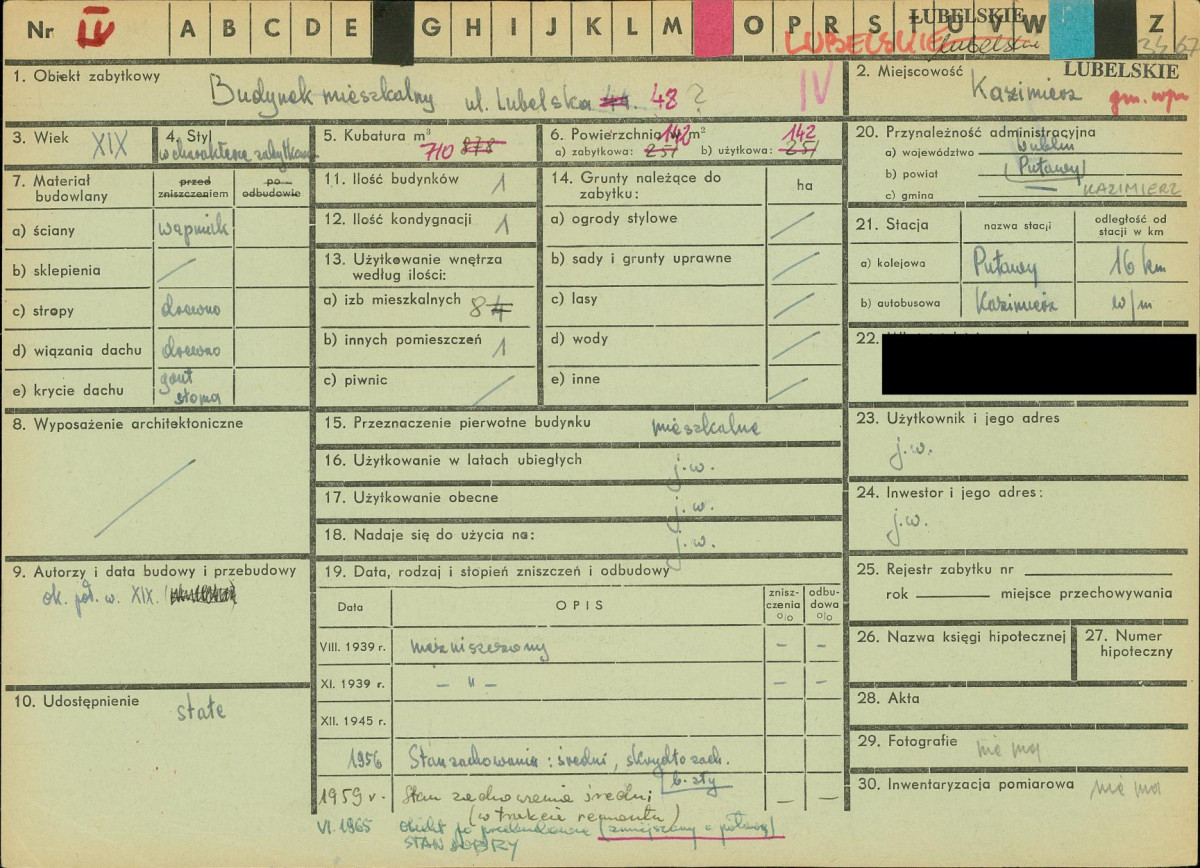 Nr IV A B C D E G H I J K L M O P R S U V W Z
LUBELSKIE
LUBELSKIE
lubelskie
1. Obiekt zabytkowy
Budynek mieszkalny ul. Lubelska 44. 48 ?
IV
2. Miejscowość
LUBELSKIE
Kazimierz
3. Wiek XIX
4. Styl
w charakterze zabytkowym
5. Kubatura m³
710 878
6. Powierzchnia m²
142 142
a) zabytkowa: 251 b) użytkowa: 251
20. Przynależność administracyjna
a) województwo Lublin
b) powiat (Puławy)
c) gmina KAZIMIERZ
7. Materiał budowlany
przed zniszczeniem
po odbudowie
a) ściany wapniak
b) sklepienia /
c) stropy drewno
d) wiązania dachu drewno
e) krycie dachu gont słoma
11. Ilość budynków 1
12. Ilość kondygnacji 1
13. Użytkowanie wnętrza według ilości:
a) izb mieszkalnych 8 4
b) innych pomieszczeń 1
c) piwnic /
14. Grunty należące do zabytku: ha
a) ogrody stylowe /
b) sady i grunty uprawne /
c) lasy /
d) wody /
e) inne /
21. Stacja nazwa stacji odległość od stacji w km
a) kolejowa Puławy 16 km
b) autobusowa Kazimierz w/m
22.
8. Wyposażenie architektoniczne
/
15. Przeznaczenie pierwotne budynku mieszkalne
16. Użytkowanie w latach ubiegłych j.w.
17. Użytkowanie obecne j.w.
18. Nadaje się do użycia na: j.w.
23. Użytkownik i jego adres
j.w.
24. Inwestor i jego adres:
j.w.
9. Autorzy i data budowy i przebudowy
ok. poł. w. XIX.
10. Udostępnienie
stałe
19. Data, rodzaj i stopień zniszczeń i odbudowy
Data OPIS zniszczenia % odbudowa %
VIII. 1939 r. niezniszczony - -
XI. 1939 r. - " - - -
XII. 1945 r.
1956 Stan zachowania: średni, skrzydło zach.
b. zły
1959 r. Stan zachowania średni - -
(w trakcie remontu)
VI. 1965 obiekt po przebudowie (zmniejszony o połowę)
STAN DOBRY
25. Rejestr zabytku nr
rok miejsce przechowywania
26. Nazwa księgi hipotecznej
27. Numer hipoteczny
28. Akta
29. Fotografie nie ma
30. Inwentaryzacja pomiarowa nie ma